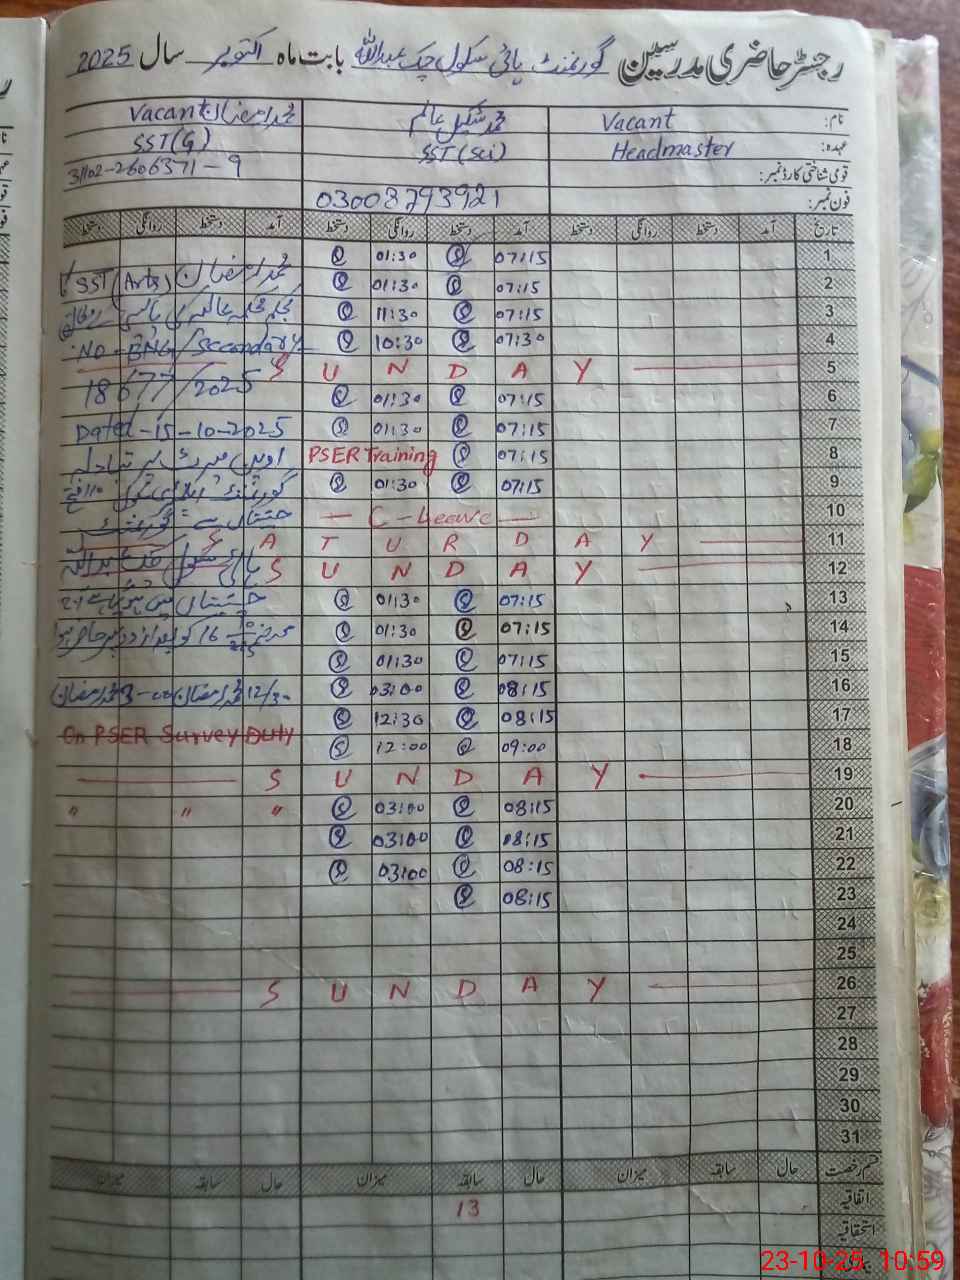 رجسٹر حاضری مدرسین گورنمنٹ ہائی سکول چک عبداللہ بابت ماہ اکتوبر سال 2025
نام: Vacant محمد شکیل عالم Vacant محمد رمضان
عہدہ: Headmaster SST (Sci) SST (G)
قومی شناختی کارڈ نمبر: 31102-2606371-9
فون نمبر: 03008793921
تاریخ آمد دستخط روانگی دستخط آمد دستخط روانگی دستخط آمد دستخط روانگی دستخط
1 07:15 01:30
2 07:15 01:30 محمد رمضان SST (Arts)
3 07:15 11:30
4 07:30 10:30 No-BNG/Secondary
5 S U N D A Y
6 07:15 01:30 18677/2025
7 07:15 01:30 Dated-15-10-2025
8 07:15 PSER Training
9 07:15 01:30 گورنمنٹ
10 C-Leave
11 S A T U R D A Y
12 S U N D A Y
13 07:15 01:30
14 07:15 01:30
15 07:15 01:30
16 08:15 03:00 12/30 محمد رمضان 3-00 محمد رمضان
17 08:15 12:30
18 09:00 12:00 On PSER Survey Duty
19 S U N D A Y
20 08:15 03:00 " " "
21 08:15 03:00
22 08:15 03:00
23 08:15
24
25
26 S U N D A Y
27
28
29
30
31
قسم رخصت حال سابقہ میزان حال سابقہ میزان حال سابقہ میزان
اتفاقیہ 13
استحقاقیہ
23-10-25 10:59